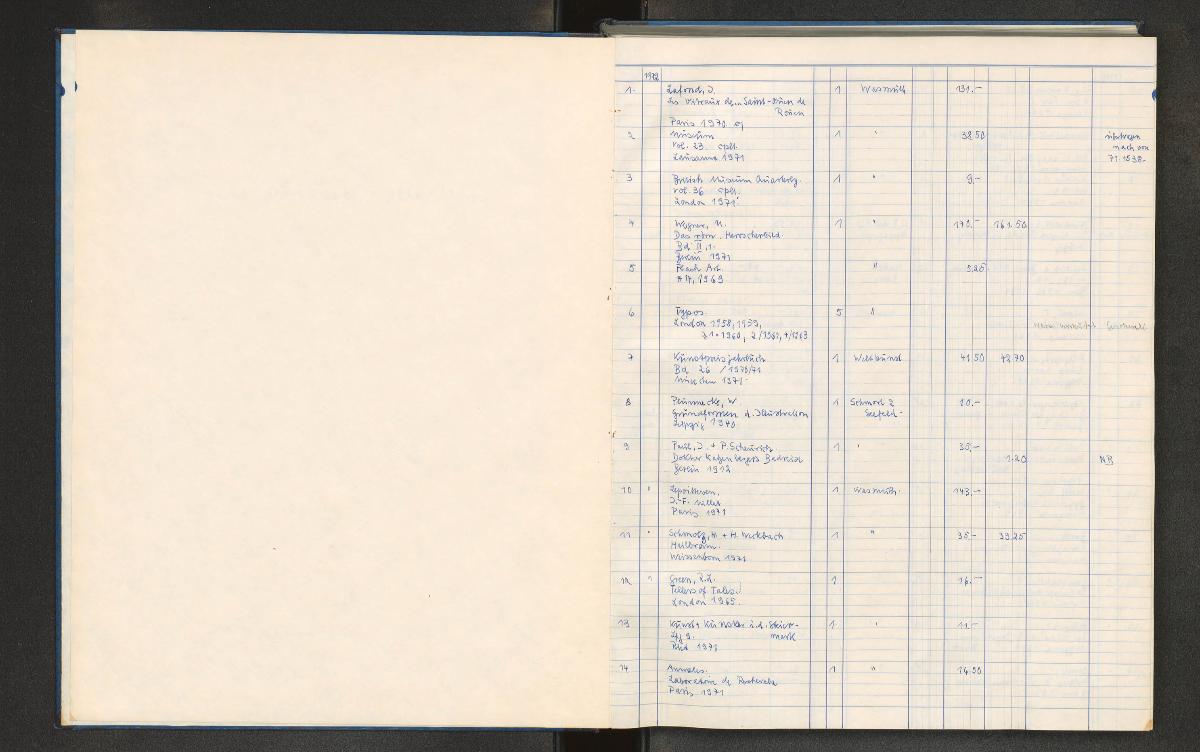 1972
1. Lafond, J. 1 Wasmuth 131.-
Les Vitraux de Saint-Ouen de
Rouen
Paris 1970
2 Museum 1 " 38.50
vol. 23. cplt. nach von
Lausanne 1971 71.1538-
3 British Museum Quarterly. 1 " 9.-
vol. 36 cplt.
London 1971
4 Wegner, M. 1 " 173.- 161.50
Das röm. Herrscherbild.
Bd II, 1.
Berlin 1971
5 " 5.25
1969
6 Typos 5 "
London 1958, 1959,
1960, 2/1961, 4/1963
7 Kunstpreisjahrbuch 1 Weltkunst 41.50 42.70
Bd 26 / 1970/71
München 1971-
8 W. 1 Schmorl &
Grundformen d. Illustration Seefeld- 10.-
Leipzig 1940
9 Paul, J. + P. Scheurich 1 " 35.-
Doktor Katzenbergers Badereise 1.20 NB
Berlin 1912
10 " 1 Wasmuth. 143.-
J.-F. Millet
Paris 1971
11 " Schmolz, H + H. Weckbach 1 " 35.- 39.25
Heilbronn.
Weissenhorn 1971
12 " Green, R.L. 1 16.-
Tellers of Tales.
London 1965.
13 Kunst + Künstler i. d. Steier- 1 " 11.-
mark
Ried 1971
14 Annales. 1 " 14.90
Laboratoire de Recherche
Paris 1971